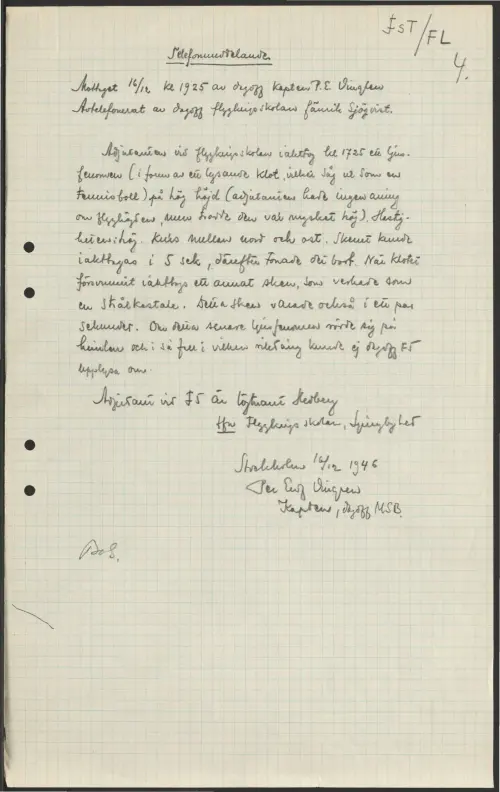 FST/FL
4.
Telefonmeddelande.
Mottaget 16/12 kl 1925 av dagoff kapten P.E. Vingren
Avtelefonerat av dagoff flygkrigsskolan fänrik Sjöqvist.
Adjutanten vid flygkrigsskolan iakttog kl 1725 ett ljus-
fenomen (i form av ett lysande klot, vilket såg ut som en
tennisboll) på hög höjd (adjutanten hade ingen aning
om flyghöjden, men trodde den var mycket hög). Hastig-
heten: hög. Kurs mellan nord och ost. Skenet kunde
iakttagas i 5 sek, därefter tonade det bort. När klotet
försvunnit iakttogs ett annat sken, som verkade som
en strålkastare. Detta sken varade också i ett par
sekunder. Om detta senare ljusfenomen rörde sig på
himlen och i så fall i vilken riktning kunde ej dagoff F5
upplysa om.
Adjutant vid F5 är löjtnant Hedberg
Flygkrigsskolan, Ljungbyhed
Stockholm 16/12 1946
Per Vingren
Kapten, dagoff MSB.